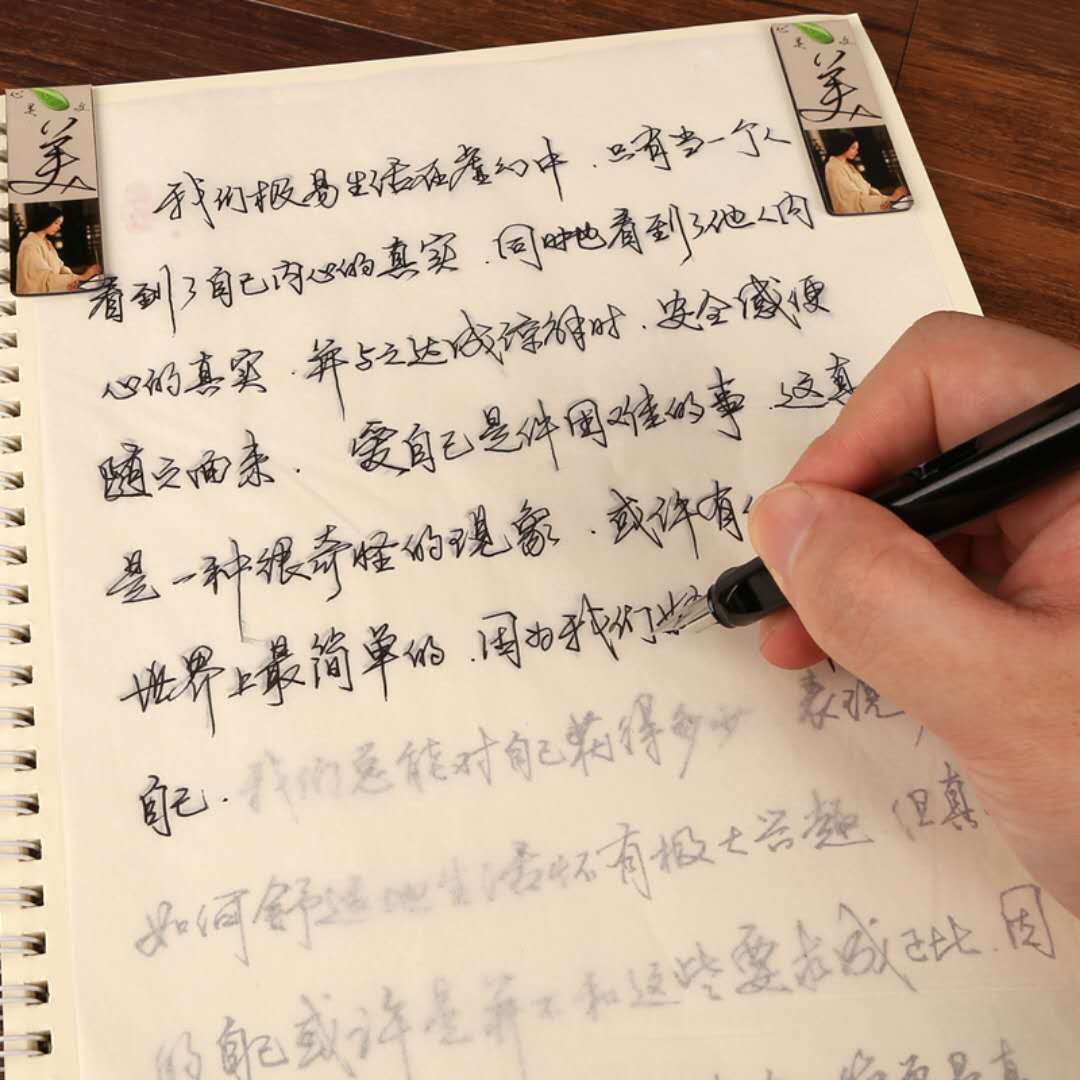 美
美
我们极易生活在虚幻中.只有当一个人
看到了自己内心的真实.同时也看到了他人内
心的真实.并与之达成谅解时.安全感便
随之而来.爱自己是件困难的事.这真
是一种很奇怪的现象.或许有
世界上最简单的.因为我们
自己.我们总能对自己获得多少 表现
如何舒适地生活怀有极大兴趣 但真
的自己或许是并不和这些要求成正比.因